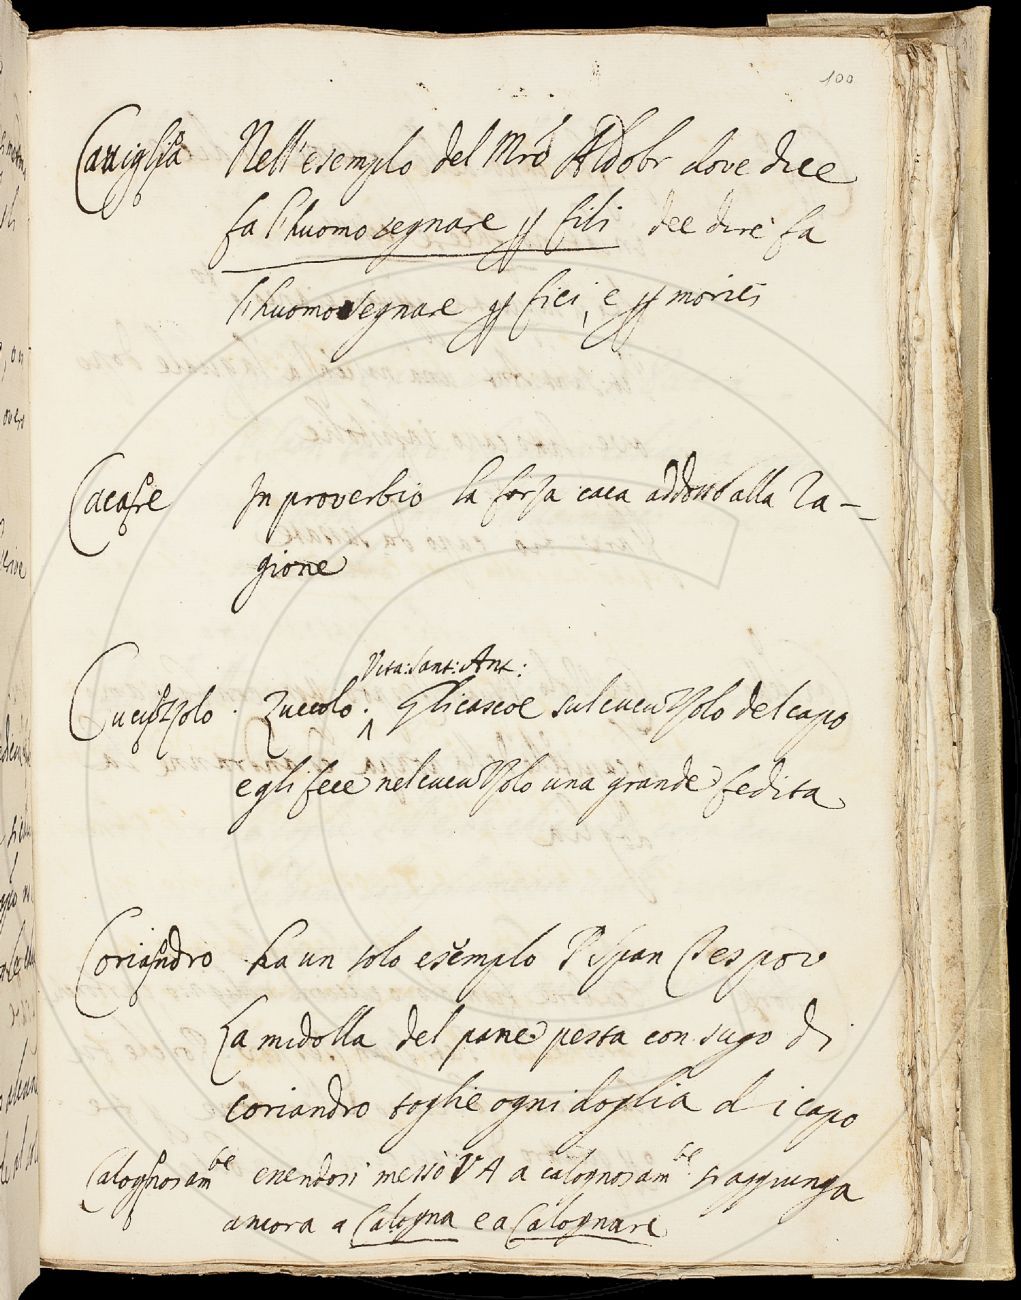 100
Caviglia Nell'esemplo del Mro Aldobr dove dice
fa l'huomo segnare p fili dee dire fa
l'huomo segnare p fici, e p morici
Cacare In proverbio la forza caca addosso alla Ra-
gione
Vita: Sant: Ant:
Cucuzzolo . Zuccolo . Gli cascoe sul cucuzzolo del capo
e gli fece nel cucuzzolo una grande fedita
Coriandro ha un solo esemplo P Ispan Tes pov
La midolla del pane pesta con sugo di
coriandro toglie ogni doglia di capo
Calognosam.te essendosi messo V A a calognosam.te si aggiunga
ancora a Calogna e a Calognare